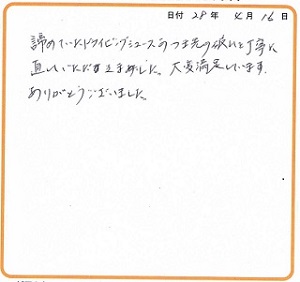 日付 28年 4月 16日
諦めていたドライビングシューズのつま先の破れを丁寧に
直していただきました。大変満足しています。
ありがとうございました。